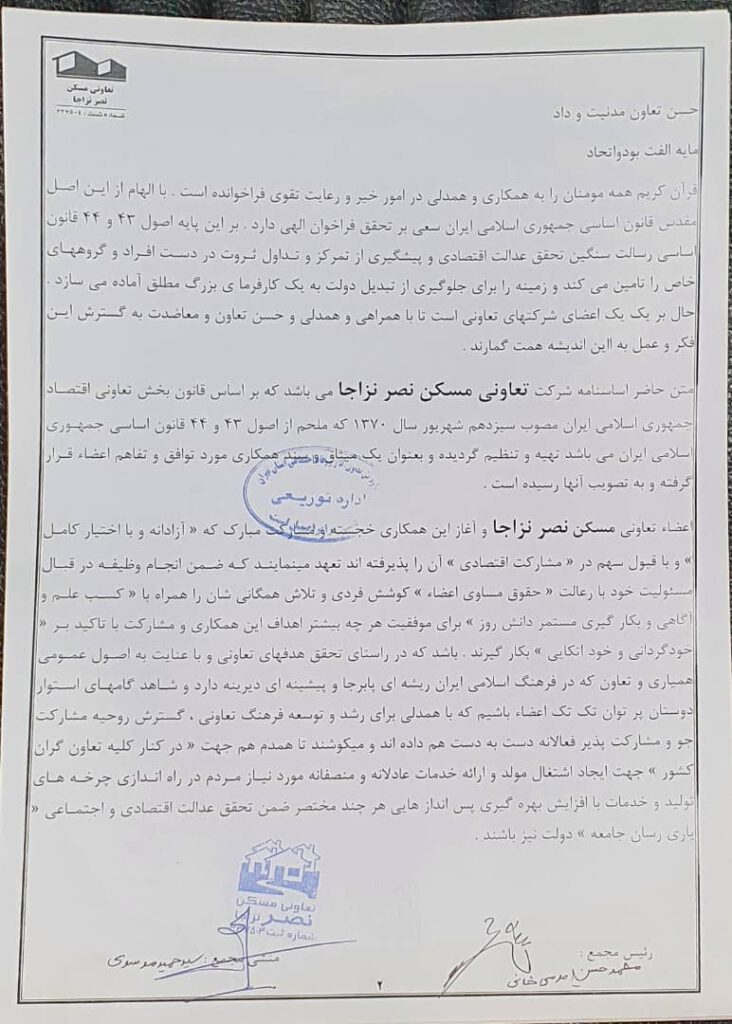 تعاونی مسکن
نصر نزاجا
حسن تعاون مدنیت و داد
مایه الفت بودواتحاد
قرآن کریم همه مومنان را به همکاری و همدلی در امور خیر و رعایت تقوی فراخوانده است . با الهام از این اصل
مقدس قانون اساسی جمهوری اسلامی ایران سعی بر تحقق فراخوان الهی دارد . بر این پایه اصول ۴۳ و ۴۴ قانون
اساسی رسالت سنگین تحقق عدالت اقتصادی و پیشگیری از تمرکز و تداول ثروت در دست افراد و گروههای
خاص را تامین می کند و زمینه را برای جلوگیری از تبدیل دولت به یک کارفرما ی بزرگ مطلق آماده می سازد .
حال بر یک یک اعضای شرکتهای تعاونی است تا با همراهی و همدلی و حسن تعاون و معاضدت به گسترش این
فکر و عمل به ااین اندیشه همت گمارند .
متن حاضر اساسنامه شرکت تعاونی مسکن نصر نزاجا می باشد که بر اساس قانون بخش تعاونی اقتصاد
جمهوری اسلامی ایران مصوب سیزدهم شهریور سال ۱۳۷۰ که ملحم از اصول ۴۳ و ۴۴ قانون اساسی جمهوری
اسلامی ایران می باشد تهیه و تنظیم گردیده و بعنوان یک میثاق و سند همکاری مورد توافق و تفاهم اعضاء قرار
گرفته و به تصویب آنها رسیده است .
اداره توزیعی
اعضاء تعاونی مسکن نصر نزاجا و آغاز این همکاری خجسته و مشارکت مبارک که « آزادانه و با اختیار کامل
» و با قبول سهم در « مشارکت اقتصادی » آن را پذیرفته اند تعهد مینمایند که ضمن انجام وظیفه در قبال
مسئولیت خود با رعالت « حقوق مساوی اعضاء » کوشش فردی و تلاش همگانی شان را همراه با « کسب علم و
آگاهی و بکار گیری مستمر دانش روز » برای موفقیت هر چه بیشتر اهداف این همکاری و مشارکت با تاکید بر «
خودگردانی و خود اتکایی » بکار گیرند . باشد که در راستای تحقق هدفهای تعاونی و با عنایت به اصول عمومی
همیاری و تعاون که در فرهنگ اسلامی ایران ریشه ای پابرجا و پیشینه ای دیرینه دارد و شاهد گامهای استوار
دوستان پر توان تک تک اعضاء باشیم که با همدلی برای رشد و توسعه فرهنگ تعاونی ، گسترش روحیه مشارکت
جو و مشارکت پذیر فعالانه دست به دست هم داده اند و میکوشند تا همدم هم جهت « در کنار کلیه تعاون گران
کشور » جهت ایجاد اشتغال مولد و ارائه خدمات عادلانه و منصفانه مورد نیاز مردم در راه اندازی چرخه های
تولید و خدمات با افزایش بهره گیری پس انداز هایی هر چند مختصر ضمن تحقق عدالت اقتصادی و اجتماعی «
یاری رسان جامعه » دولت نیز باشند .
تعاونی مسکن
نصر نزاجا
شماره ثبت
رئیس مجمع :
محمدحسن موسی خانی
منشی مجمع : سید حمید موسوی
۲